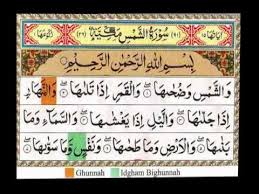 اٰيَاتُهَا ١٥ (٩١) سُوْرَةُ الشَّمْسِ مَكِّيَّةٌ (٢٦)
بِسْمِ اللهِ الرَّحْمٰنِ الرَّحِيْمِ
وَالشَّمْسِ وَضُحٰىهَا وَالْقَمَرِ اِذَا تَلٰىهَا وَالنَّهَارِ
اِذَا جَلّٰىهَا وَالَّيْلِ اِذَا يَغْشٰىهَا وَالسَّمَآءِ وَمَا
بَنٰىهَا وَالْاَرْضِ وَمَا طَحٰىهَا وَنَفْسٍ وَّمَا سَوّٰىهَا
Ghunnah Idgham Bighunnah